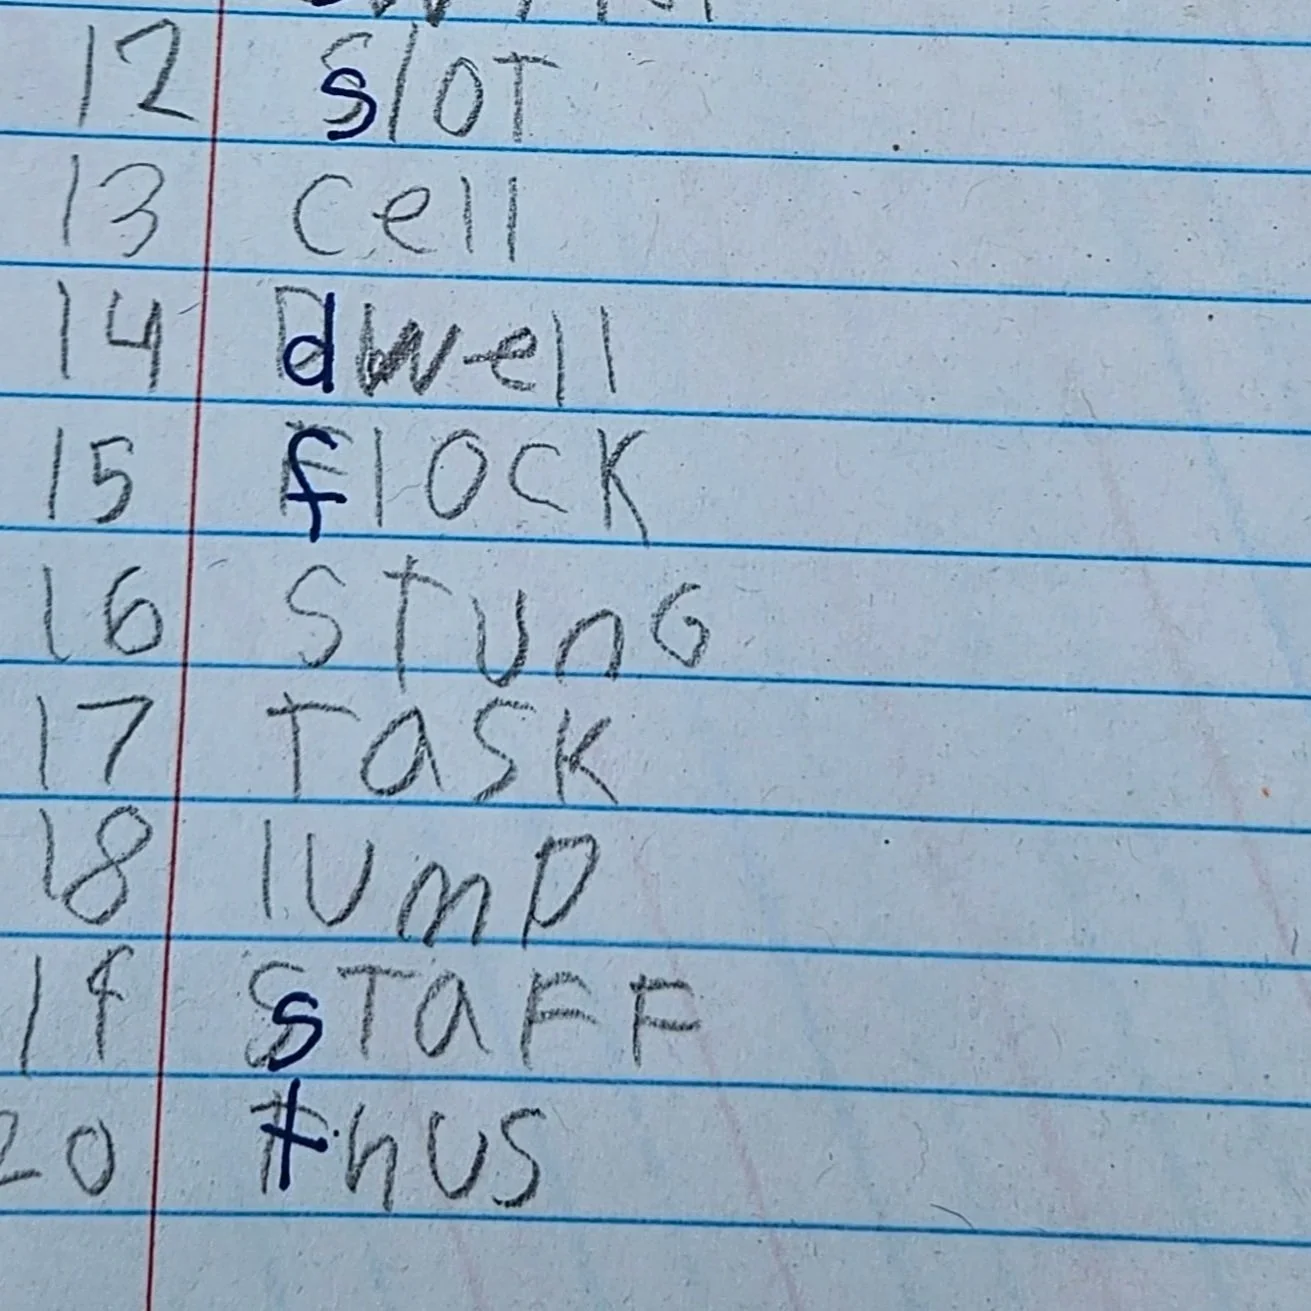 12 slOT
13 cell
14 dwell
15 flOCK
16 STUnG
17 TaSK
18 lUmp
19 sTaFF
20 thUS